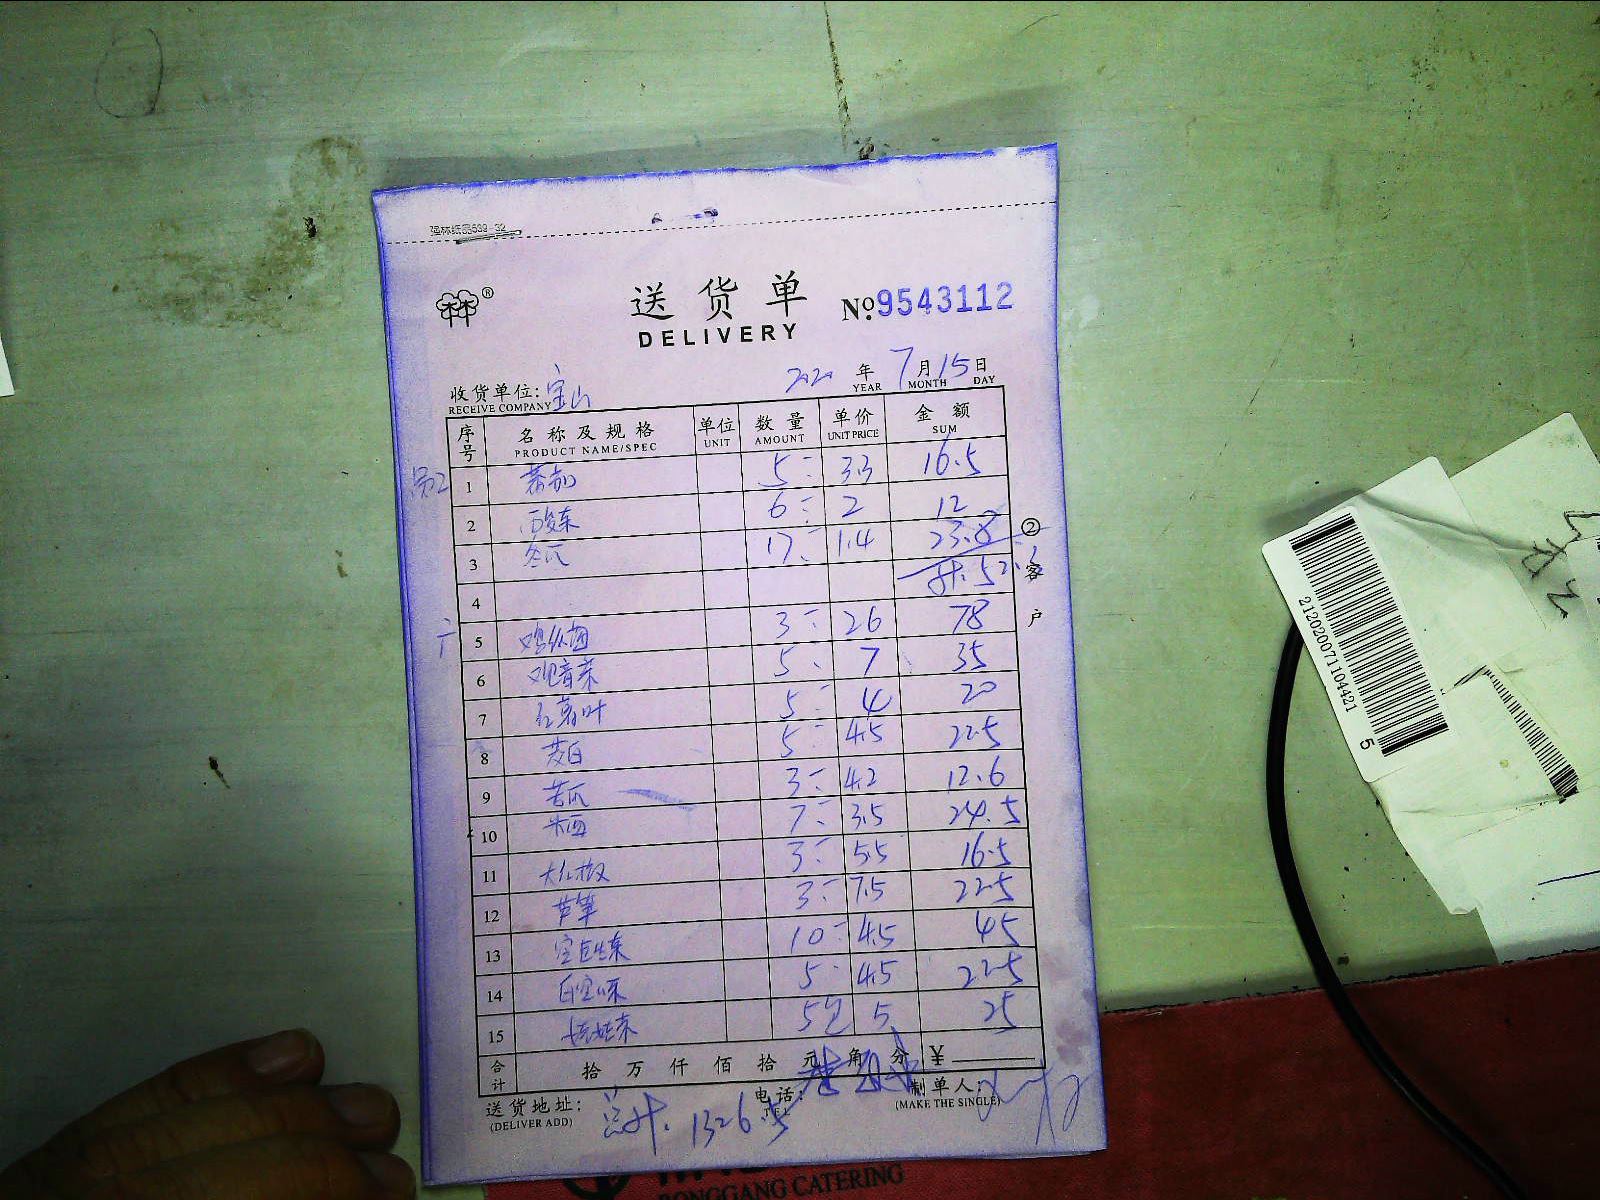 强林纸品539-32
®
送货单
No.9543112
DELIVERY
收货单位:宝山
2020年7月15日
RECEIVE COMPANY YEAR MONTH DAY
序号 名称及规格 单位 数量 单价 金额
PRODUCT NAME/SPEC UNIT AMOUNT UNIT PRICE SUM
员工 1 蕃茄 5 3.3 16.5
2 6 2 12
3 冬瓜 17 1.4 23.8
4 计.52.3
5 3 26 78
6 观音菜 5 7 35
7 红薯叶 5 4 20
8 茭白 5 4.5 22.5
9 苦瓜 3 4.2 12.6
10 7 3.5 24.5
11 大红椒 3 5.5 16.5
12 芦笋 3 7.5 22.5
13 10 4.5 45
14 5 4.5 22.5
15 娃娃菜 5包 5 25
② 客户
合计 拾 万 仟 佰 拾 元 角 分 ¥
送货地址: 电话: 制单人:
(DELIVER ADD) TEL (MAKE THE SINGLE)
总计.1326.5
RONGGANG CATERING
212020071104421
5